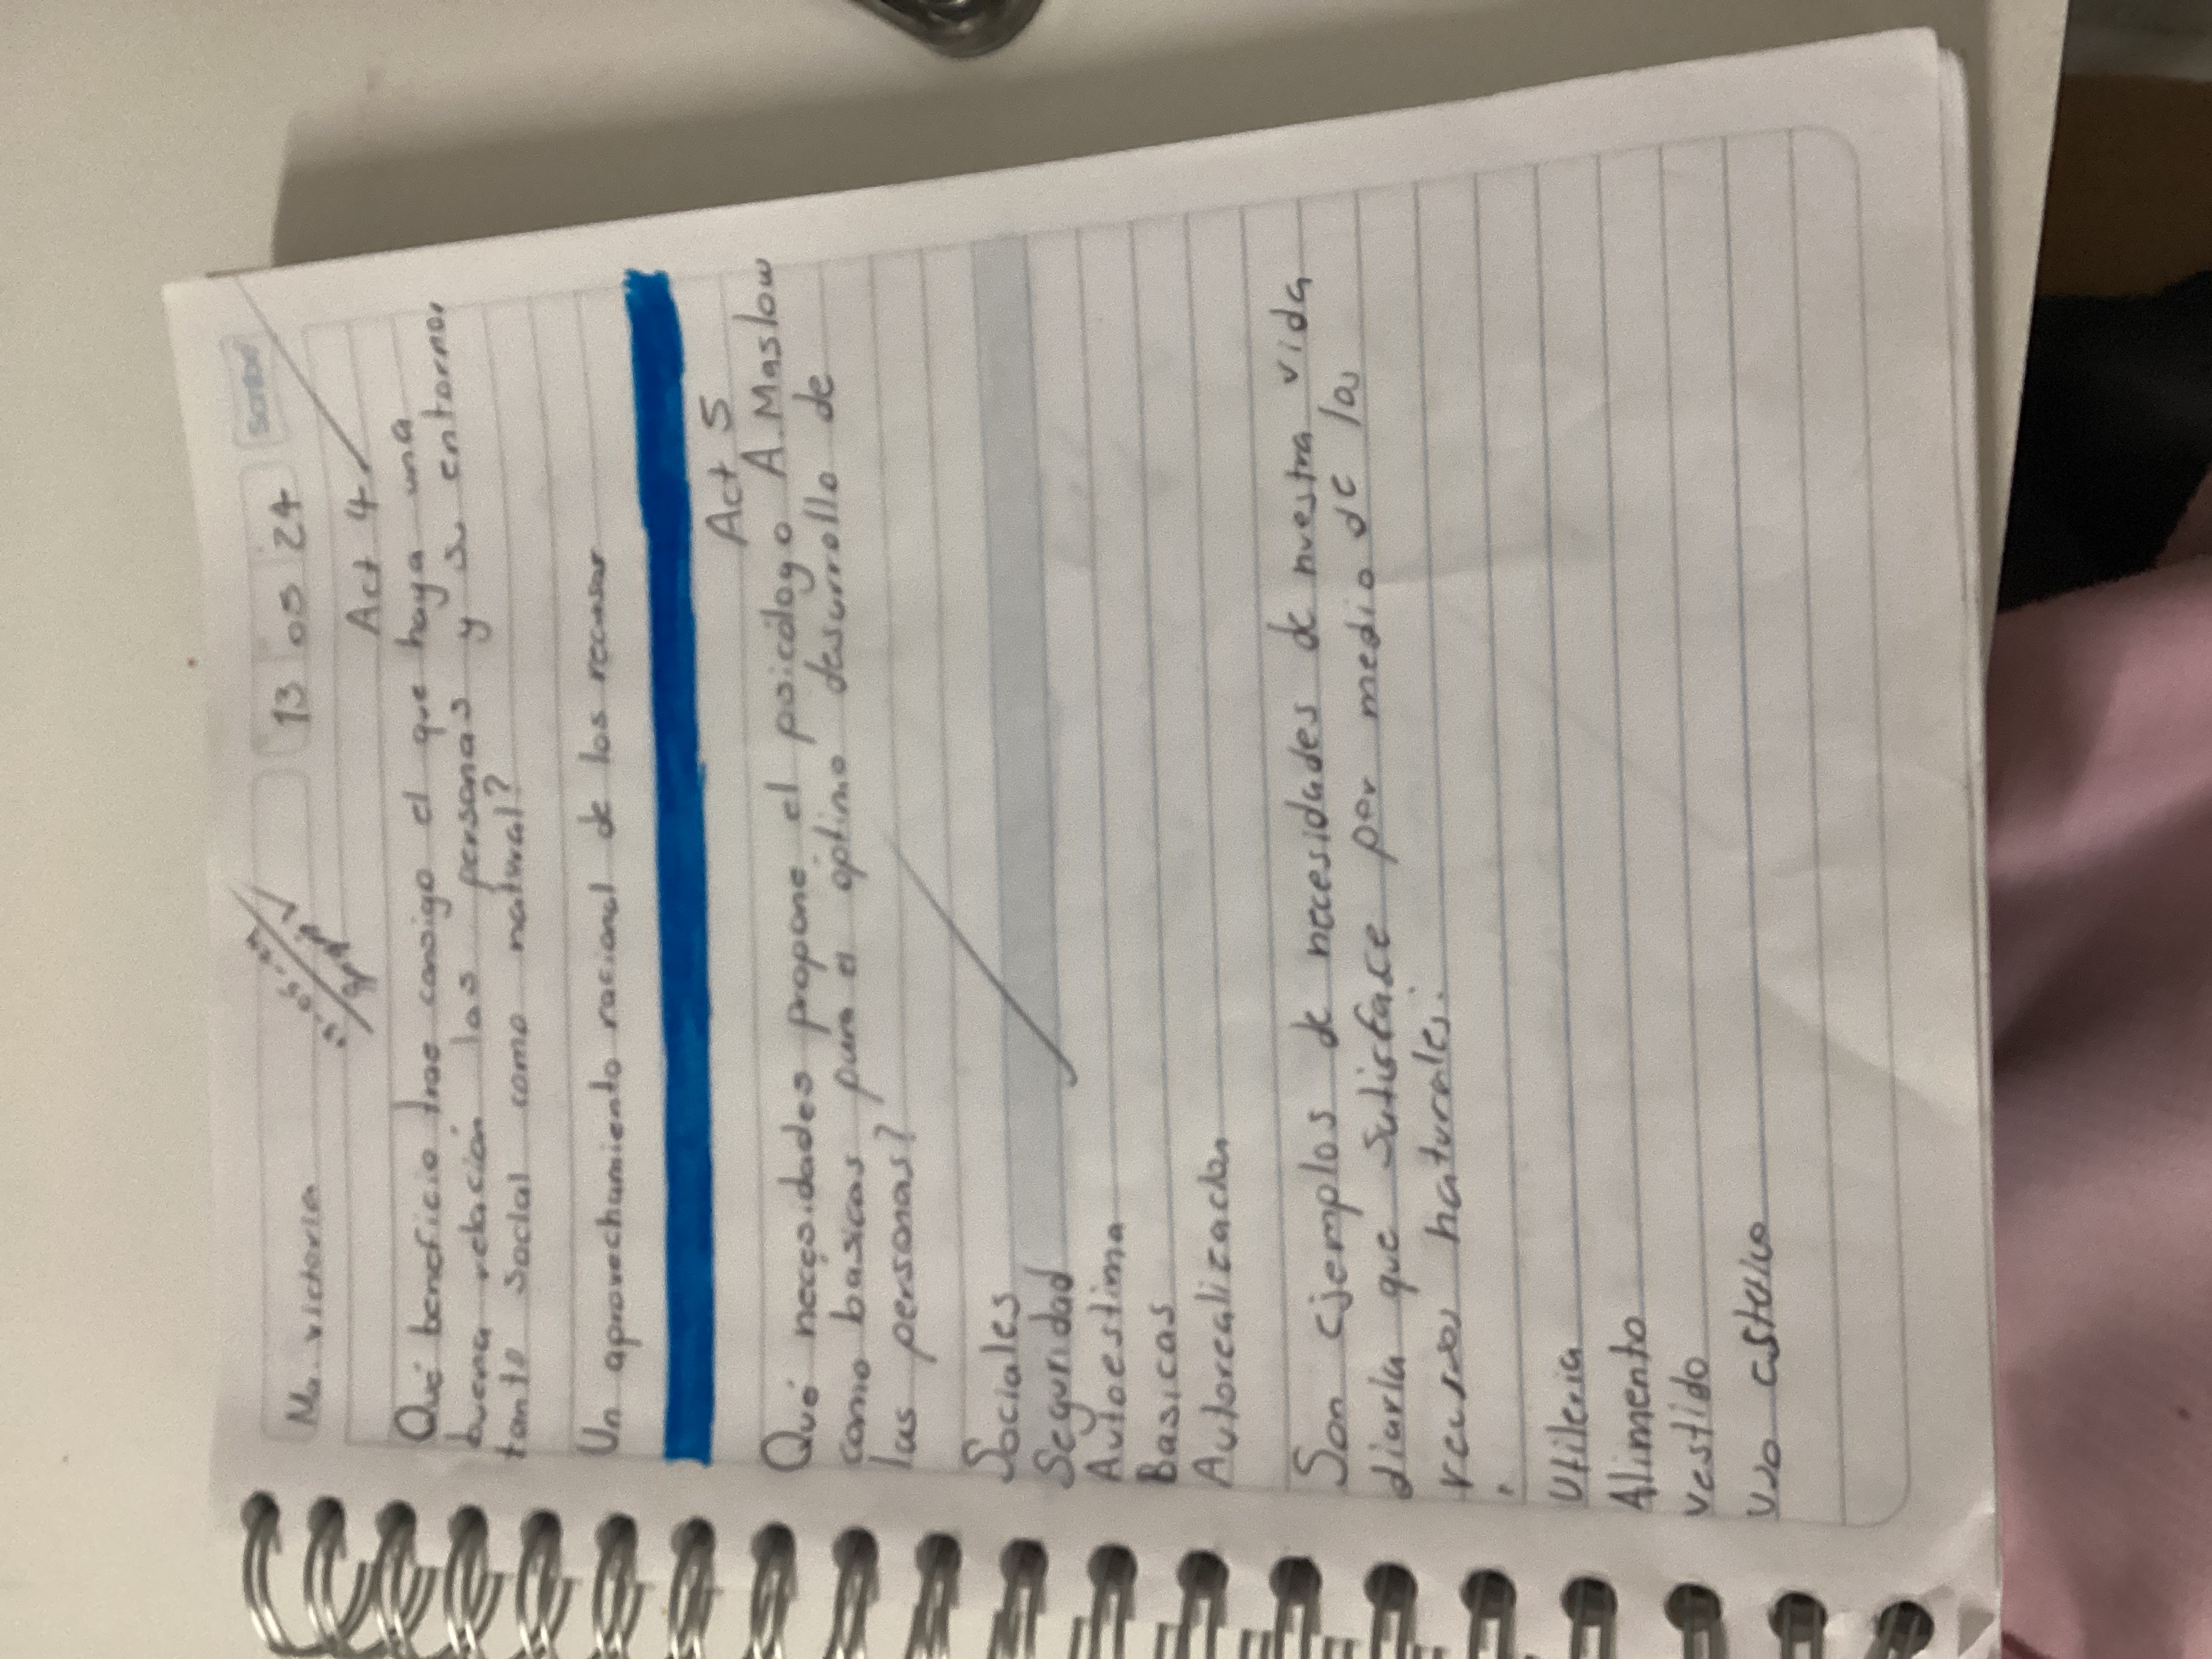 Ma. victoria 13 05 24 Scribe
Act 4
Qué beneficio trae consigo el que haya una
buena relación las personas y su entorno,
tanto social como natural?
Un aprovechamiento racional de los recursos
Act 5
Qué necesidades propone el psicólogo A. Maslow
como basicas para el optimo desarrollo de
las personas?
Sociales
Seguridad
Autoestima
Basicas
Autorealización
Son ejemplos de necesidades de nuestra vida
diaria que satisface por medio de los
recursos naturales:
Utileria
Alimento
vestido
uso estetico